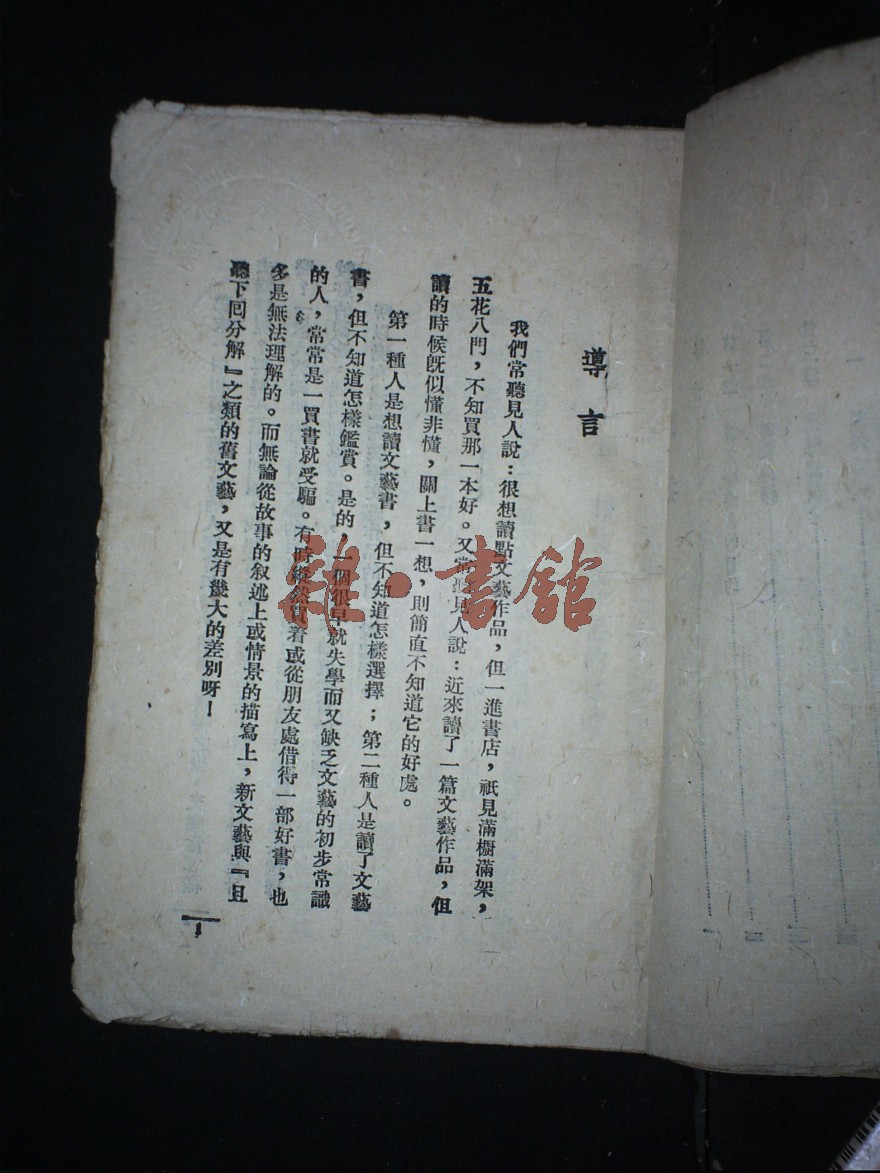 導言
我們常聽見人說：很想讀點文藝作品，但一進書店，祇見滿櫥滿架，
五花八門，不知買那一本好。又常聽見人說：近來讀了一篇文藝作品，但
讀的時候旣似懂非懂，關上書一想，則簡直不知道它的好處。
第一種人是想讀文藝書，但不知道怎樣選擇；第二種人是讀了文藝
書，但不知道怎樣鑑賞。是的，一個很早就失學而又缺乏文藝的初步常識
的人，常常是一買書就受騙。有時縱然買着或從朋友處借得一部好書，也
多是無法理解的。而無論從故事的叙述上或情景的描寫上，新文藝與『且
聽下囘分解』之類的舊文藝，又是有幾大的差別呀！
1
雜·書館